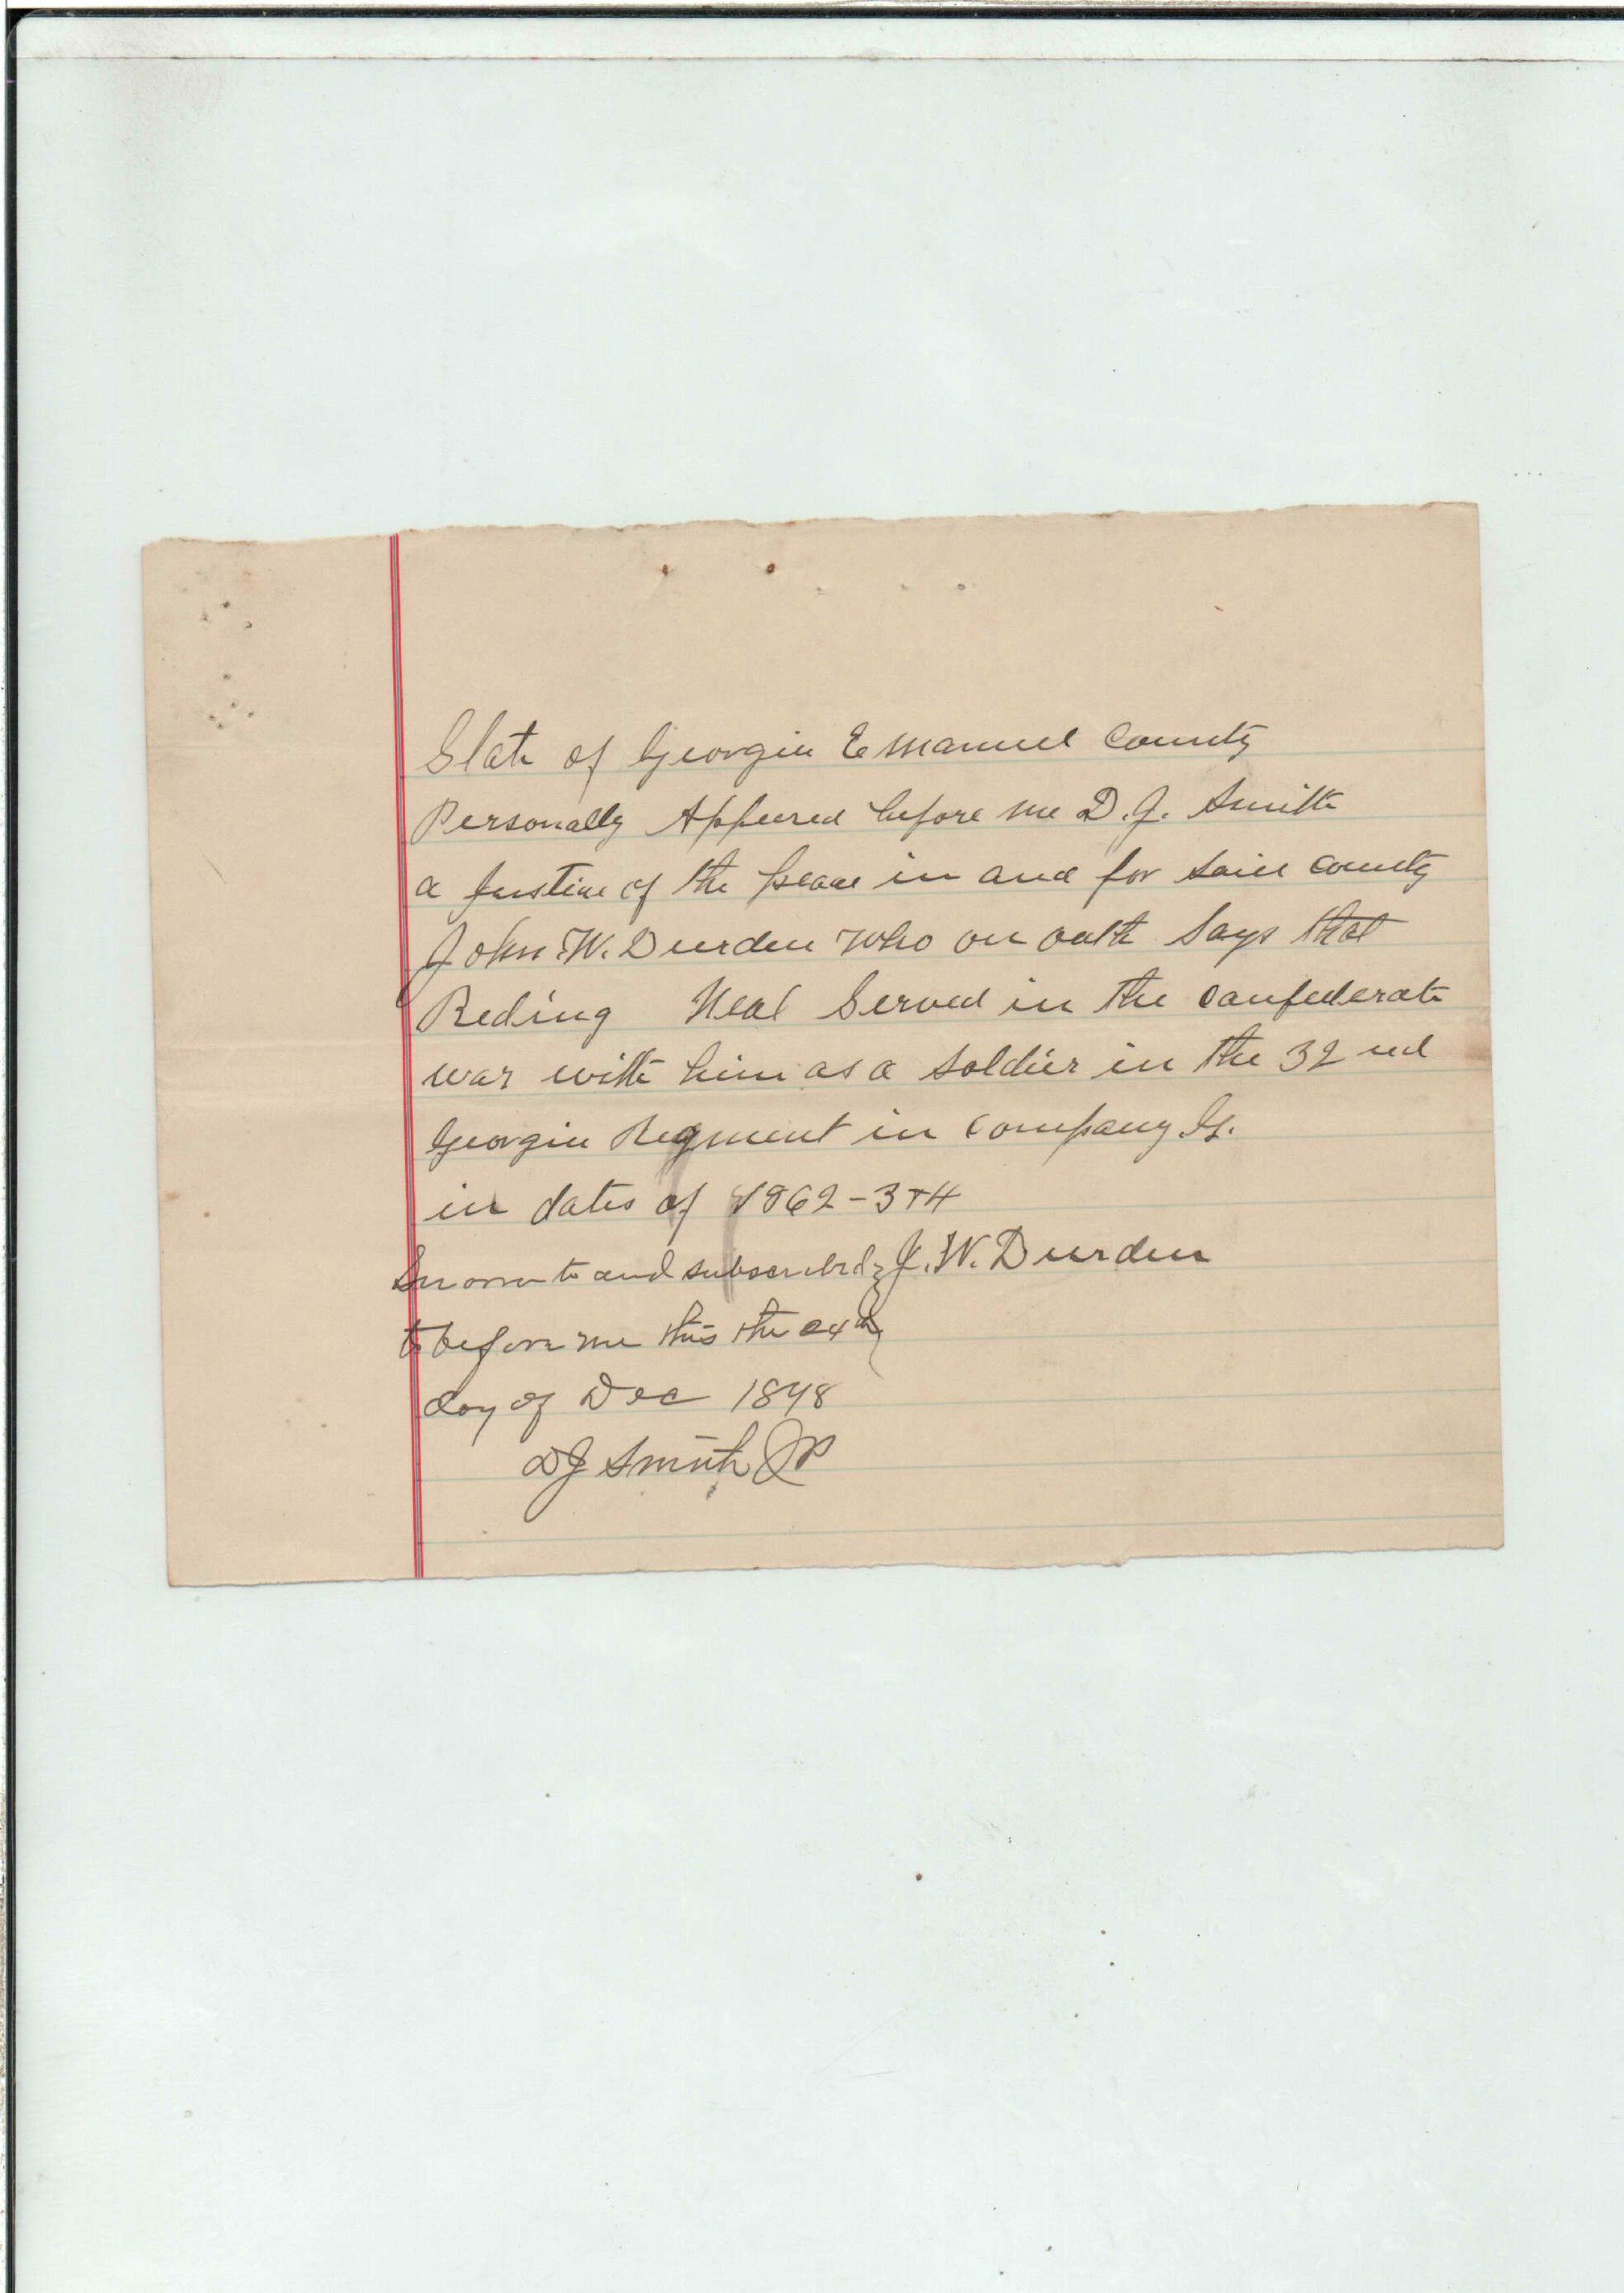 State of Georgia Emanuel County
Personally Appeared before me D. J. Smith
a Justice of the peace in and for said county
John W. Durden who on oath says that
Reding Neal Served in the Confederate
war with him as a soldier in the 32 nd
Georgia Regment in Company G.
in dates of 1862-3+4
Sworn to and subscribed J. W. Durden
to before me this the 24th
day of Dec 1898
DJ Smith JP